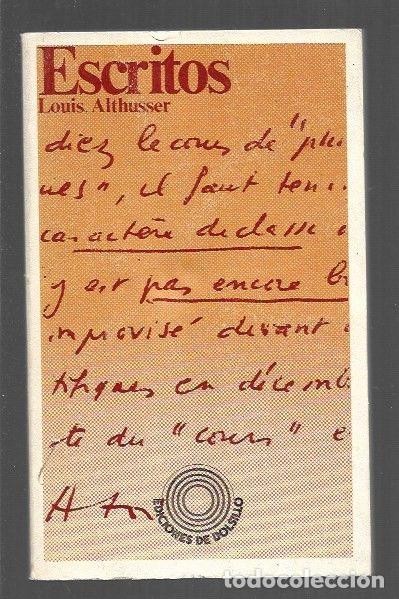 Escritos
Louis Althusser
diez le cours de "phi
ues", il faut teni
caractère de classe
y est pas encore b
improvisé devant
tifiques en décemb
te du "cours" e
A
EDICIONES DE BOLSILLO
todocoleccion
todocoleccion.net